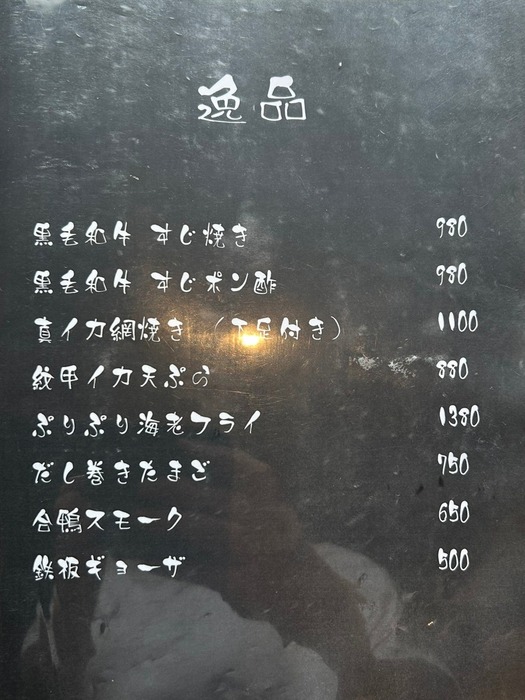 逸品
黒毛和牛 すじ焼き 980
黒毛和牛 すじポン酢 980
真イカ網焼き (下足付き) 1100
紋甲イカ天ぷら 880
ぷりぷり海老フライ 1380
だし巻きたまご 750
合鴨スモーク 650
鉄板ギョーザ 500